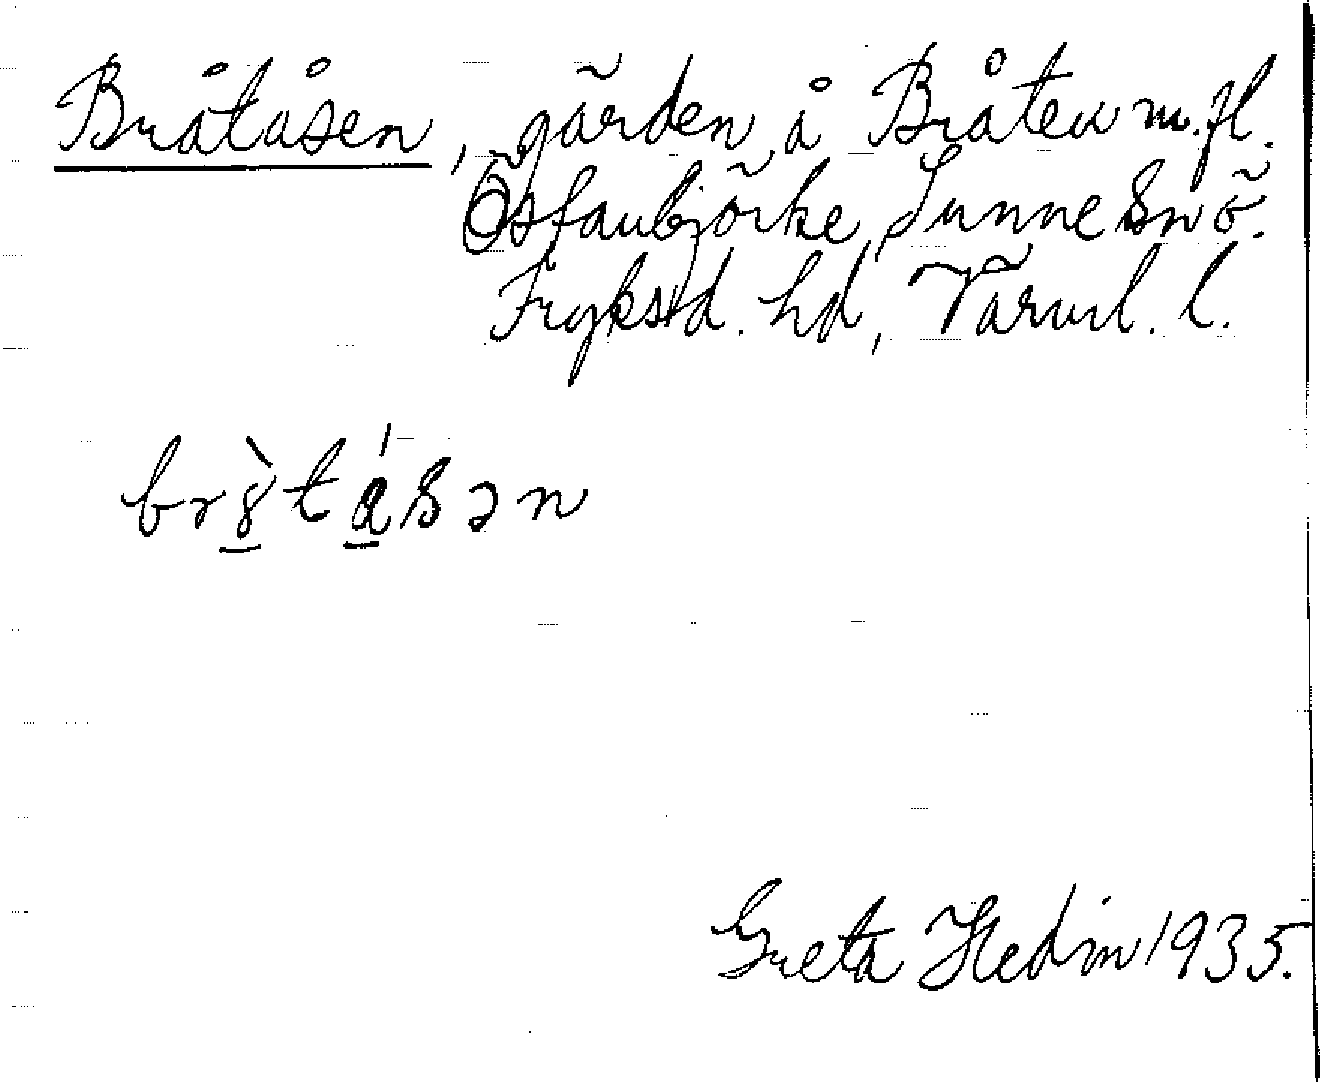 Bråtåsen, gården å Bråten m.fl.
Östanbjörke, Sunne Snö.
Fryksd. hd, Värml. l.
brȣ̀tásən
Greta Hedin 1935.